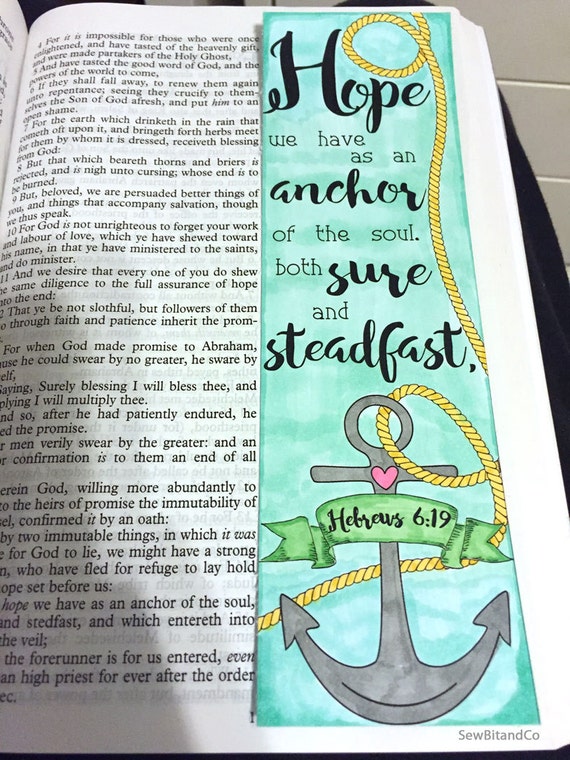 4 For it is impossible for those who were once
enlightened, and have tasted of the heavenly gift,
and were made partakers of the Holy Ghost,
5 And have tasted the good word of God, and the
powers of the world to come,
6 If they shall fall away, to renew them again
unto repentance; seeing they crucify to them-
selves the Son of God afresh, and put him to an
open shame.
7 For the earth which drinketh in the rain that
cometh oft upon it, and bringeth forth herbs meet
for them by whom it is dressed, receiveth blessing
from God:
8 But that which beareth thorns and briers is
rejected, and is nigh unto cursing; whose end is to
be burned.
9 But, beloved, we are persuaded better things of
you, and things that accompany salvation, though
we thus speak.
10 For God is not unrighteous to forget your work
and labour of love, which ye have shewed toward
his name, in that ye have ministered to the saints,
and do minister.
11 And we desire that every one of you do shew
the same diligence to the full assurance of hope
unto the end:
12 That ye be not slothful, but followers of them
who through faith and patience inherit the prom-
For when God made promise to Abraham,
because he could swear by no greater, he sware by
self,
Saying, Surely blessing I will bless thee, and
plying I will multiply thee.
And so, after he had patiently endured, he
ed the promise.
r men verily swear by the greater: and an
or confirmation is to them an end of all
erein God, willing more abundantly to
to the heirs of promise the immutability of
sel, confirmed it by an oath:
by two immutable things, in which it was
e for God to lie, we might have a strong
n, who have fled for refuge to lay hold
ope set before us:
hope we have as an anchor of the soul,
and stedfast, and which entereth into
the veil;
the forerunner is for us entered, even
an high priest for ever after the order
ec.
Hope
we have
as an
anchor
of the soul.
both sure
and
steadfast,
Hebrews 6:19
SewBitandCo